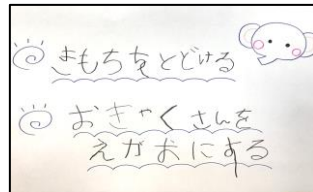 きもちをとどける
おきゃくさんを
えがおにする